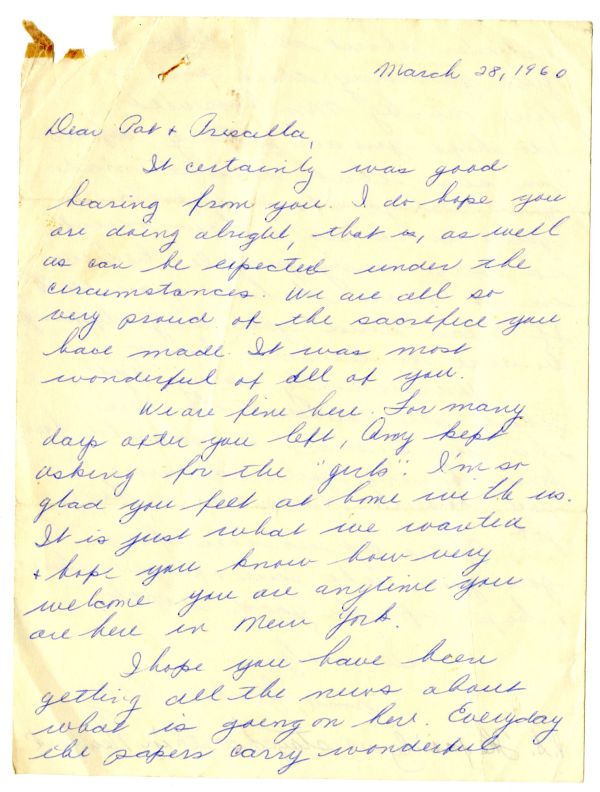 March 28, 1960
Dear Pat & Priscilla,
It certainly was good
hearing from you. I do hope you
are doing alright, that is, as well
as can be expected under the
circumstances. We are all so
very proud of the sacrifice you
have made. It was most
wonderful of all of you.
We are fine here. For many
days after you left, Amy kept
asking for the "girls". I'm so
glad you felt at home with us.
It is just what we wanted
& hope you know how very
welcome you are anytime you
are here in New York.
I hope you have been
getting all the news about
what is going on here. Everyday
the papers carry wonderful